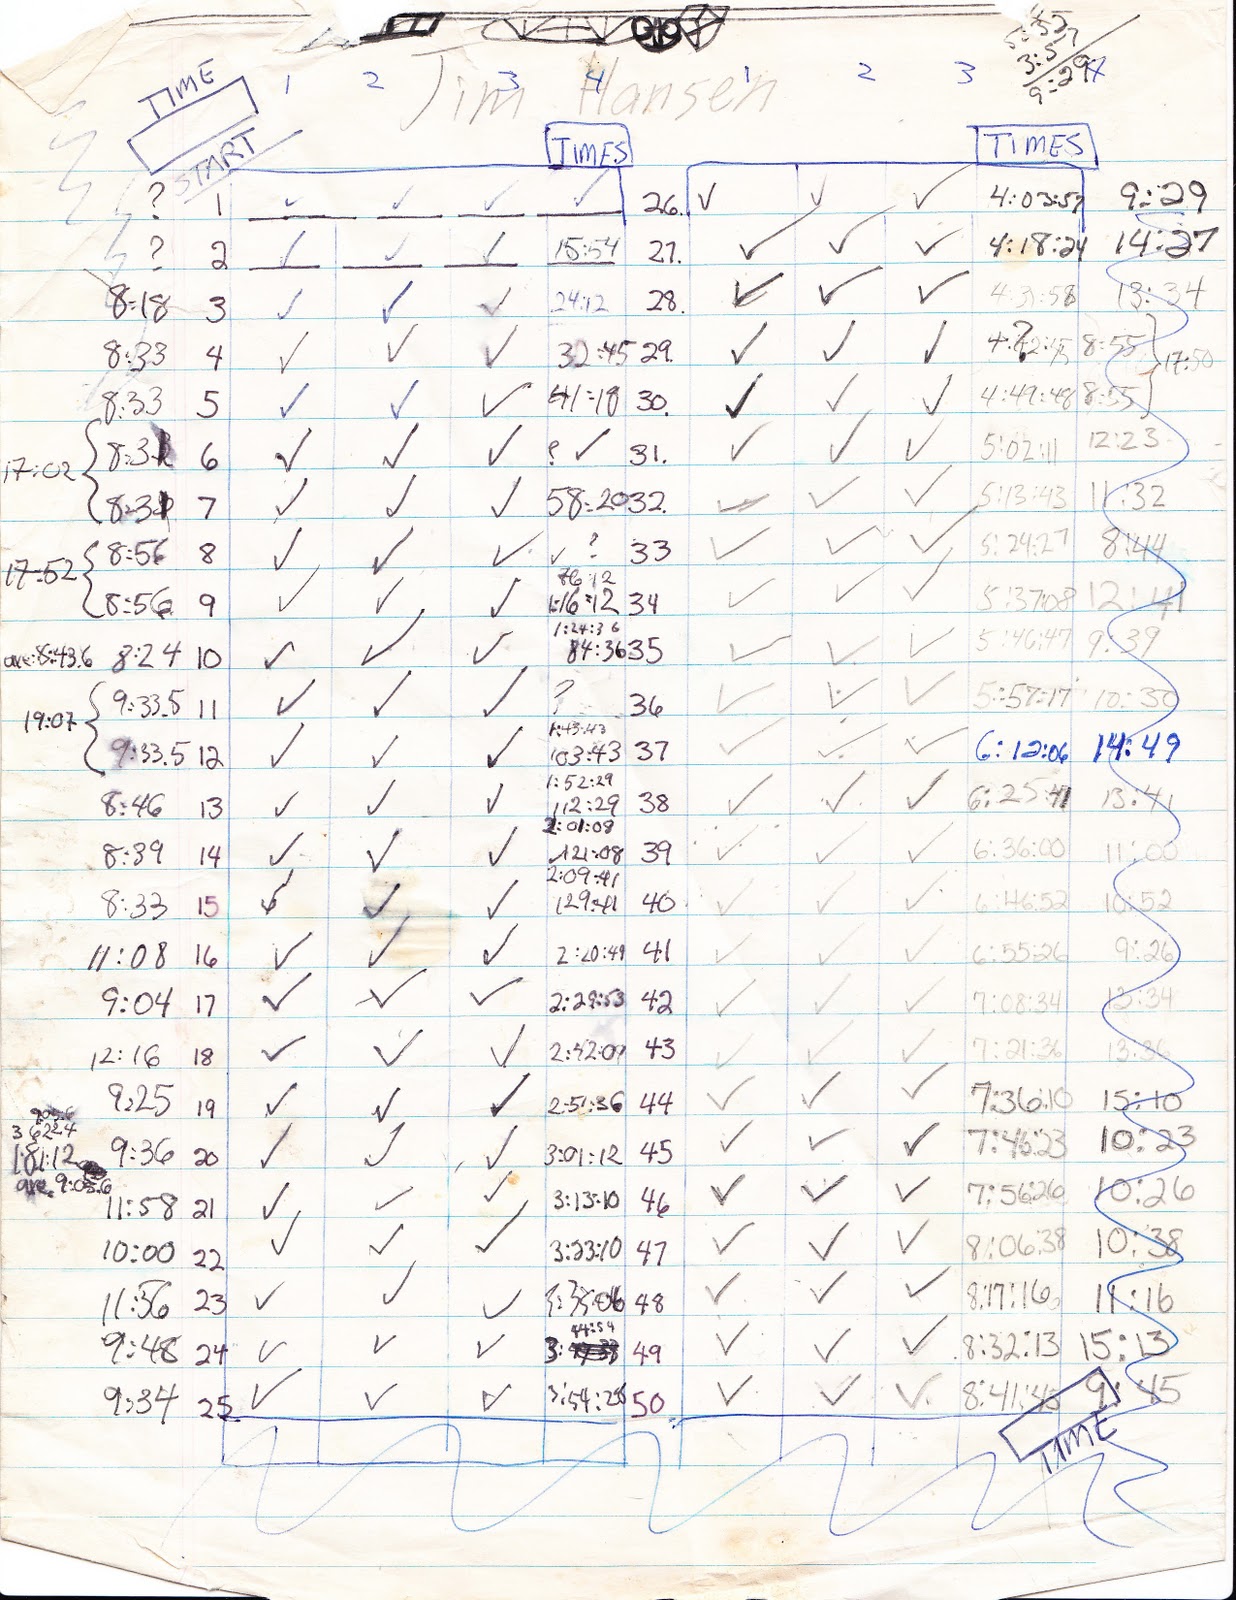 5:45
3:57
9:29
TIME 1 2 3 4 1 2 3 4
Jim Hansen
START TIMES TIMES
? 1 ✓ ✓ ✓ ✓ 26. ✓ ✓ ✓ 4:03:57 9:29
? 2 ✓ ✓ ✓ 15:54 27. ✓ ✓ ✓ 4:18:24 14:27
8:18 3 ✓ ✓ ✓ 24:12 28. ✓ ✓ ✓ 4:31:58 13:34
8:33 4 ✓ ✓ ✓ 32:45 29. ✓ ✓ ✓ 8:55 17:50
8:33 5 ✓ ✓ ✓ 41:18 30. ✓ ✓ ✓ 4:49:48 8:55
17:02 8:31 6 ✓ ✓ ✓ ? ✓ 31. ✓ ✓ ✓ 5:02:11 12:23
8:31 7 ✓ ✓ ✓ 58:20 32. ✓ ✓ ✓ 5:13:43 11:32
17:52 8:56 8 ✓ ✓ ✓ ✓ ? 33 ✓ ✓ ✓ 5:24:27 8:44
76:12
8:56 9 ✓ ✓ ✓ 1:16:12 34 ✓ ✓ ✓ 5:37:08 12:41
1:24:36
ave:8:43.6 8:24 10 ✓ ✓ ✓ 84:36 35 ✓ ✓ ✓ 5:46:47 9:39
19:07 9:33.5 11 ✓ ✓ ✓ ? 36 ✓ ✓ ✓ 5:57:17 10:30
1:43:43
9:33.5 12 ✓ ✓ ✓ 103:43 37 ✓ ✓ ✓ 6:12:06 14:49
1:52:29
8:46 13 ✓ ✓ ✓ 112:29 38 ✓ ✓ ✓ 6:25:47 13:41
2:01:08
8:39 14 ✓ ✓ ✓ 121:08 39 ✓ ✓ ✓ 6:36:00 11:00
2:09:41
8:33 15 ✓ ✓ ✓ 129:41 40 ✓ ✓ ✓ 6:46:52 10:52
11:08 16 ✓ ✓ ✓ 2:20:49 41 ✓ ✓ ✓ 6:55:26 9:26
9:04 17 ✓ ✓ ✓ 2:29:53 42 ✓ ✓ ✓ 7:08:34 13:34
12:16 18 ✓ ✓ ✓ 2:42:09 43 ✓ ✓ ✓ 7:21:36 13:36
9:25 19 ✓ ✓ ✓ 2:51:36 44 ✓ ✓ ✓ 7:36:10 15:10
905.6
3622.4
181:12 9:36 20 ✓ ✓ ✓ 3:01:12 45 ✓ ✓ ✓ 7:46:23 10:23
ave. 9:03.6
11:58 21 ✓ ✓ ✓ 3:13:10 46 ✓ ✓ ✓ 7:56:26 10:26
10:00 22 ✓ ✓ ✓ 3:23:10 47 ✓ ✓ ✓ 8:06:38 10:38
11:56 23 ✓ ✓ ✓ 3:35:06 48 ✓ ✓ ✓ 8:17:16 11:16
44:54
9:48 24 ✓ ✓ ✓ 3: 49 ✓ ✓ ✓ 8:32:13 15:13
9:34 25 ✓ ✓ ✓ 3:54:28 50 ✓ ✓ ✓ 8:41:45 9:45
TIME